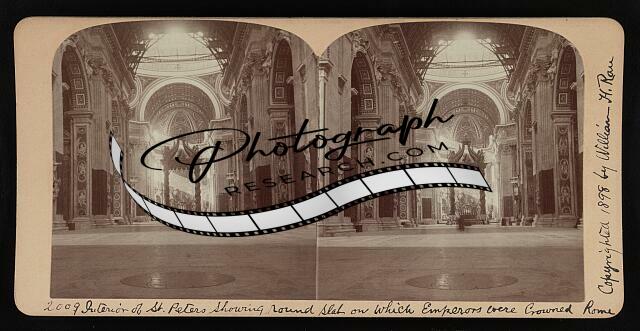 Photograph
RESEARCH.COM
2009 Interior of St. Peters Showing round slab on which Emperors were Crowned Rome
Copyrighted 1898 by William H. Rau